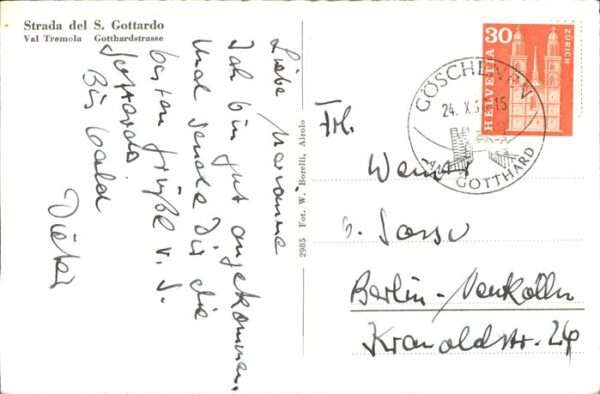 Strada del S. Gottardo
Val Tremola Gotthardstrasse
Liebe Marianne
Ich bin gut angekommen,
und sende Dir die
besten Grüße v. S.
Gottardo.
Bis bald
Dieter
2985 Fot. W. Borelli, Airolo
30
HELVETIA
ZUERICH
GÖSCHENEN
24. X. 15
GOTTHARD
Frl.
b.
Berlin-Neukölln
Kranoldstr. 24